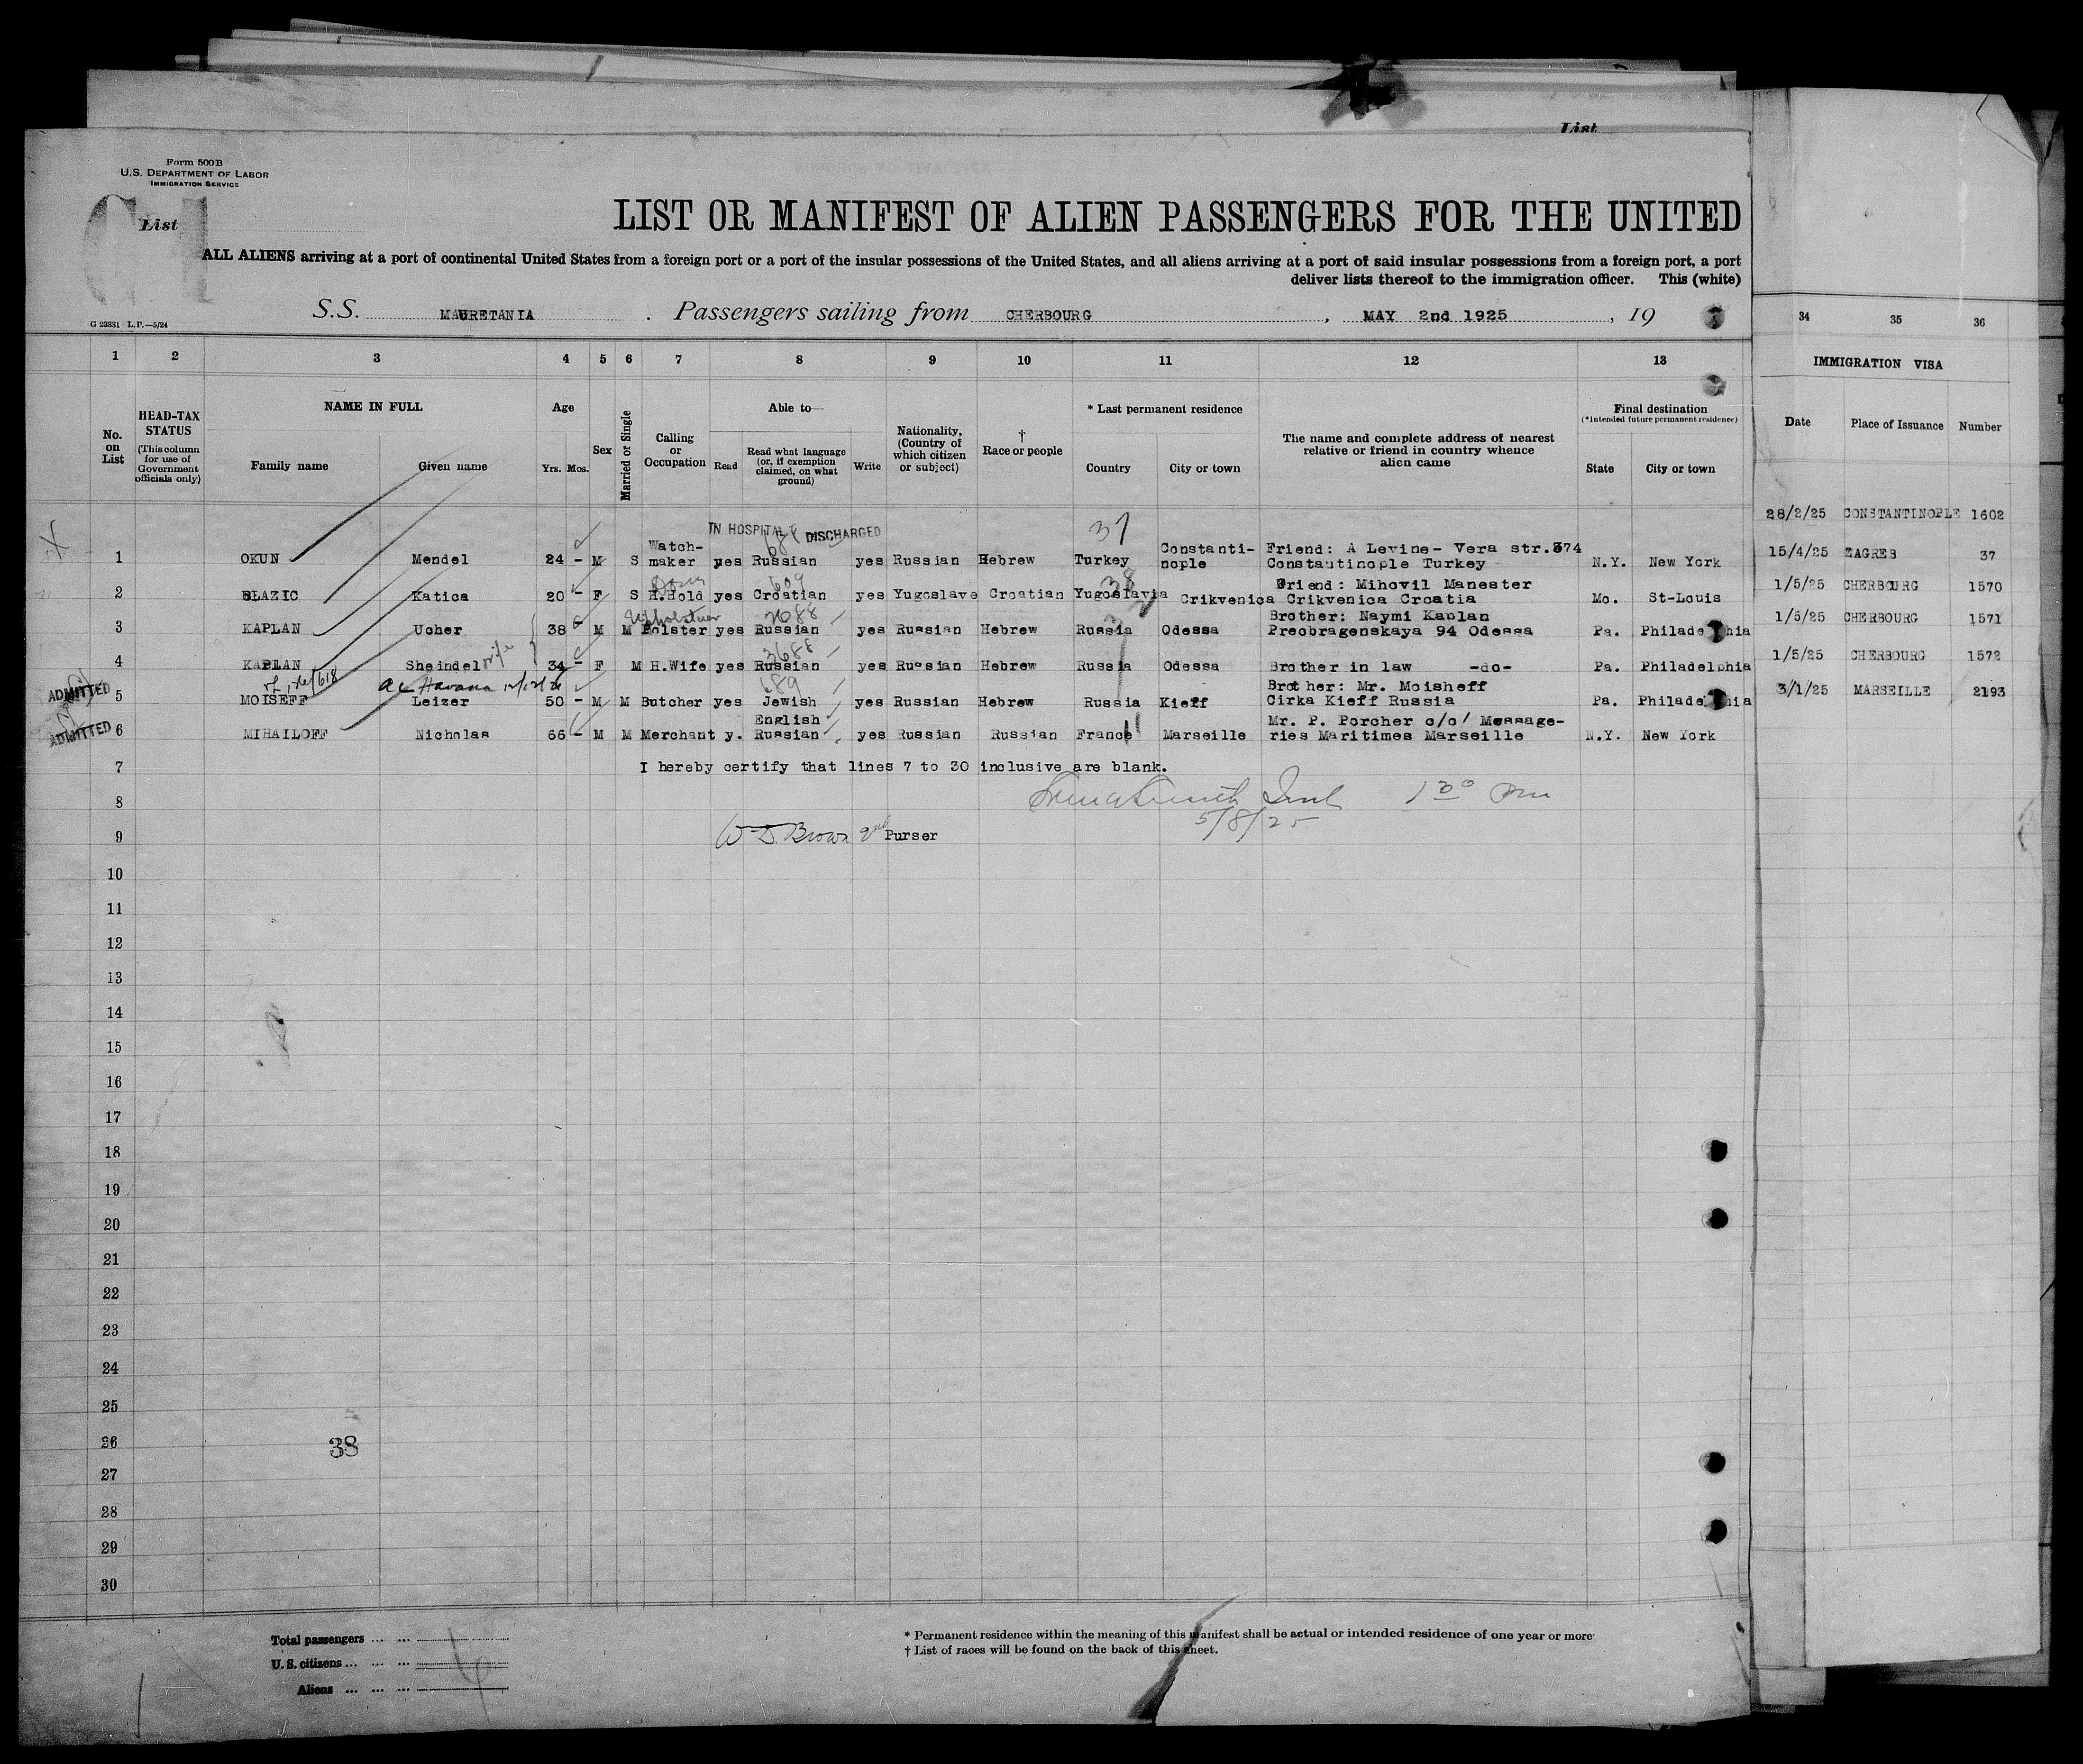 List
Form 500 B
U.S. DEPARTMENT OF LABOR
IMMIGRATION SERVICE
List
LIST OR MANIFEST OF ALIEN PASSENGERS FOR THE UNITED
ALL ALIENS arriving at a port of continental United States from a foreign port or a port of the insular possessions of the United States, and all aliens arriving at a port of said insular possessions from a foreign port, a port
deliver lists thereof to the immigration officer. This (white)
S.S. MAURETANIA . Passengers sailing from CHERBOURG , MAY 2nd 1925 , 19
G 23881 L.P.—5/24
34 35 36
1 2 3 4 5 6 7 8 9 10 11 12 13
IMMIGRATION VISA
No. on List
HEAD-TAX STATUS
(This column for use of Government officials only)
NAME IN FULL
Family name Given name
Age
Yrs. Mos.
Sex
Married or Single
Calling or Occupation
Able to—
Read
Read what language (or, if exemption claimed, on what ground)
Write
Nationality, (Country of which citizen or subject)
† Race or people
* Last permanent residence
Country City or town
The name and complete address of nearest relative or friend in country whence alien came
Final destination
(*Intended future permanent residence)
State City or town
Date Place of Issuance Number
28/2/25 CONSTANTINOPLE 1602
IN HOSPITAL DISCHARGED
37
X 1 OKUN Mendel 24 - M S Watch-maker yes Russian yes Russian Hebrew Turkey Constanti-nople Friend: A Levine- Vera str.374 Constantinople Turkey N.Y. New York
15/4/25 ZAGREB 37
609
38
2 BLAZIC Katica 20 - F S H.Hold yes Croatian yes Yugoslave Croatian Yugoslavia Crikvenica Friend: Mihovil Manester Crikvenica Croatia Mo. St-Louis
1/5/25 CHERBOURG 1570
Upholsterer
3 KAPLAN Ucher 38 M M Polster yes Russian yes Russian Hebrew Russia Odessa Brother: Naymi Kaplan Preobragenskaya 94 Odessa Pa. Philade hia
1/5/25 CHERBOURG 1571
3688
4 KAPLAN Sheindel wife 34 - F M H.Wife yes Russian yes Russian Hebrew Russia Odessa Brother in law -do- Pa. Philadelphia
1/5/25 CHERBOURG 1572
Havana
689
ADMITTED 5 MOISEFF Leizer 50 - M M Butcher yes Jewish yes Russian Hebrew Russia Kieff Brother: Mr. Moisheff Cirka Kieff Russia Pa. Philade hia
3/1/25 MARSEILLE 2193
ADMITTED 6 MIHAILOFF Nicholas 66 - M M Merchant y. English Russian yes Russian Russian France Marseille Mr. P. Porcher c/o/ Message-ries Maritimes Marseille N.Y. New York
7 I hereby certify that lines 7 to 30 inclusive are blank.
8 1 30 PM
5/8/25
9 W D. Brown 2nd Purser
10
11
12
13
14
15
16
17
18
19
20
21
22
23
24
25
26 38
27
28
29
30
Total passengers ... ... 6
U.S. citizens ... ... ...
Aliens ... ... ...
* Permanent residence within the meaning of this manifest shall be actual or intended residence of one year or more
† List of races will be found on the back of this sheet.